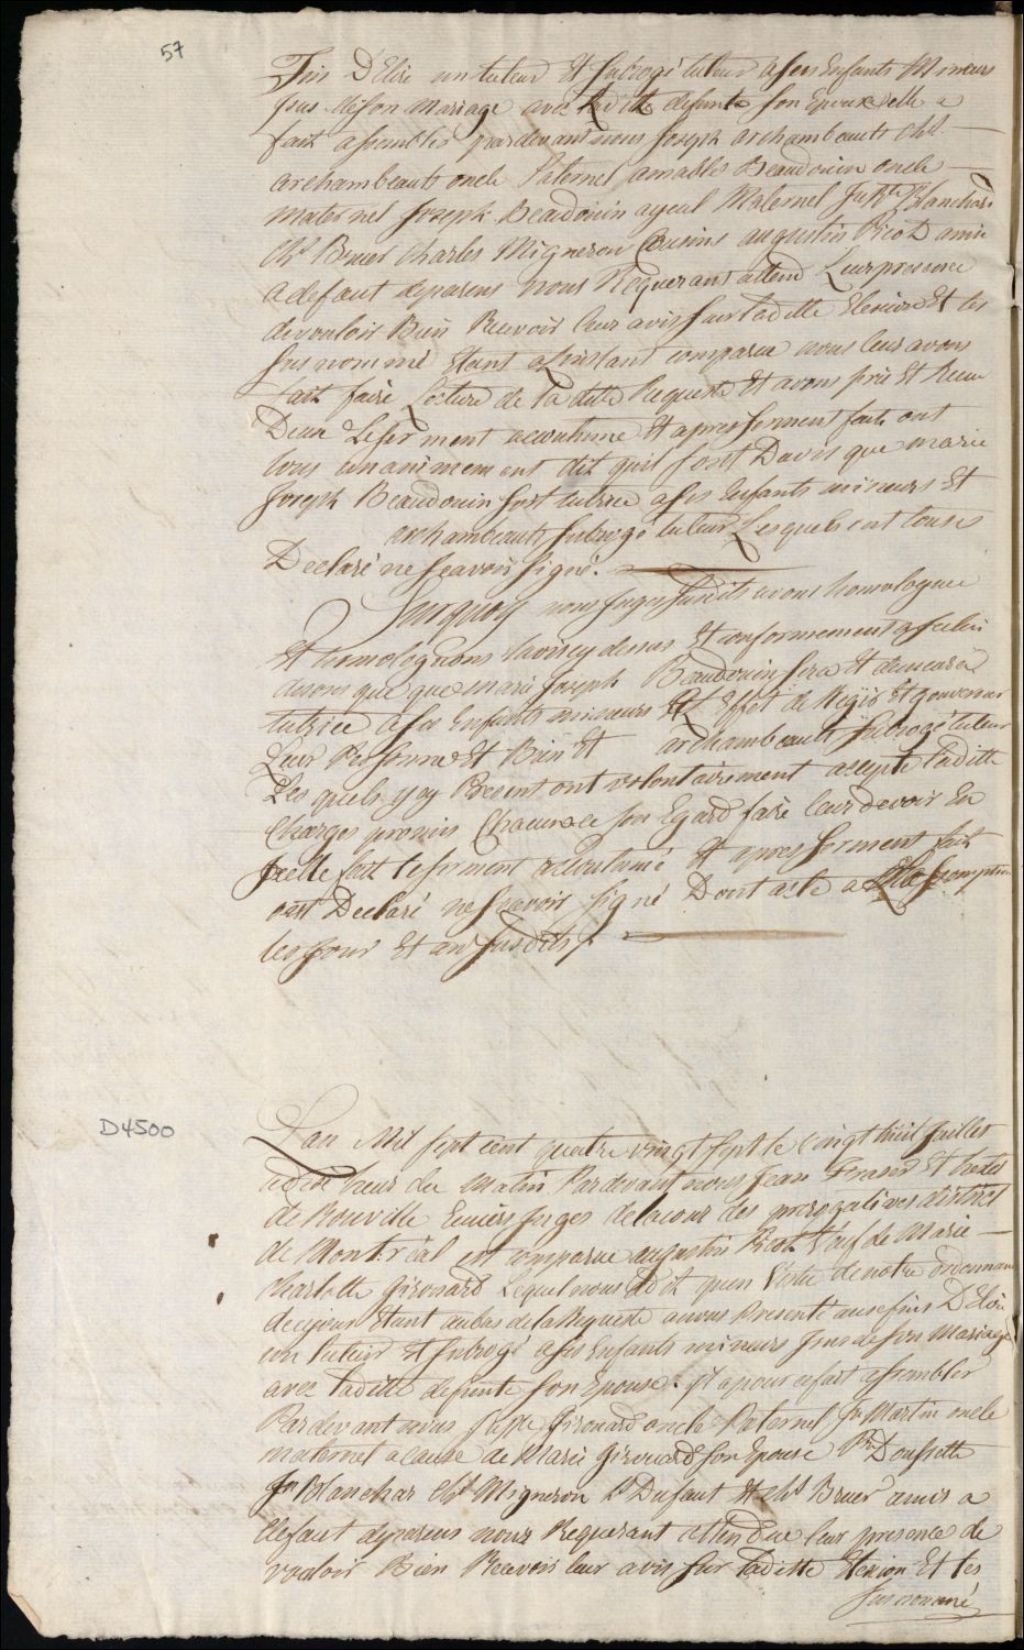 57
Fins D'Elire un tuteur Et subrogé tuteur a ses Enfants Mineurs
jssus de son mariage avec Ledit defunte son Epoux elle a
fait assembler pardevant nous Joseph archambeault Chs
archambeault oncle Paternel amable Beaudouin oncle
maternel Joseph Beaudouin ayeul Maternel Jn Bte Blanchar
Chs Bruer Charles Migneron Cousins augustin Picot amis
a defaut deparens nous Requerant attend Leur presence
de vouloir Bien Recevoir leur avis sur Laditte Elexion Et les
susnommé Etant a Linstant comparu nous leur avons
fait faire Lecture de la ditte Requeste Et avons pris Et Recu
Deux Le serment accoutumé Et apres serment fait ont
tous unanimement dit quil sont Davis que marie
Joseph Beaudouin soit tutrice a ses Enfants mineurs Et
archambeault subrogé tuteur Lesquels ont tous
Declaré ne scavoir signé.
Surquoy nous Juges susdits avons homologuée
Et homologuons lavis cy dessus Et conformement a celui
disons que que marie Joseph Beaudouin sera Et demeurera
tutrice a ses Enfants mineurs a L'Effet de Regir Et gouverner
Leur Personne Et Bien Et archambeault subrogé tuteur
Les quels y ay Present ont volontairement accepte Laditte
Charges promis Chacun a son Egard faire leur devoir En
jcelle fait le serment accoutumé Et apres serment fait
ont Declaré ne scavoir signé Dont acte a L'assomption
les jour Et an susdits
D4500
Lan Mil sept cent quatre vingt sept le vingt huit juillet
a dix heur du Matin Pardevant nous Jean Fraser Et hertel
de Rouville Ecuiers Juges de la cour des prerogatives district
de Montréal est comparue augustin Picot Veuf de Marie
charlotte Girouard Lequel nous a dit quen Vertu de notre ordonnance
de ce jour Etant au bas de la Requeste a nous Presenté aux fins D'Elire
un tuteur Et subrogé a ses Enfants mineurs jssus de son Mariage
avec laditte defunte son Epouse. jl a pour ce fait assembler
Pardevant nous Joseph Girouard oncle Paternel Jn Martin oncle
maternel a cause de Marie Girouard son Epouse Pre Doussette
Jn Blanchar Chs Migneron Ls Dufaut Et Chs Bruer amis a
defaut deparens nous Requerant attendue leur presence de
vouloir Bien Recevoir leur avis sur Laditte Elexion Et les
susnommé